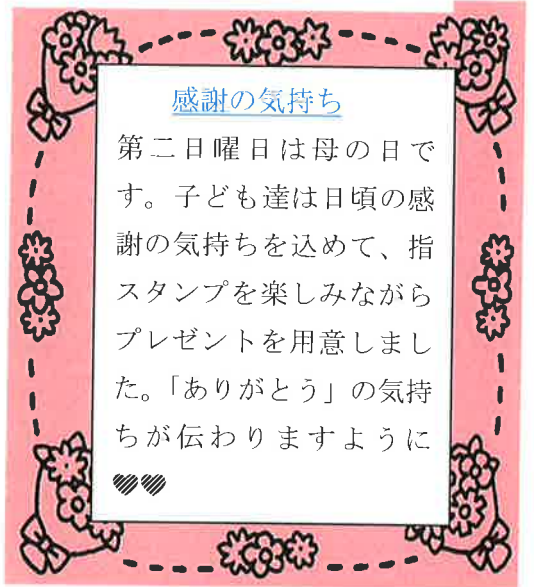 感謝の気持ち
第二日曜日は母の日で
す。子ども達は日頃の感
謝の気持ちを込めて、指
スタンプを楽しみながら
プレゼントを用意しまし
た。「ありがとう」の気持
ちが伝わりますように
♥♥